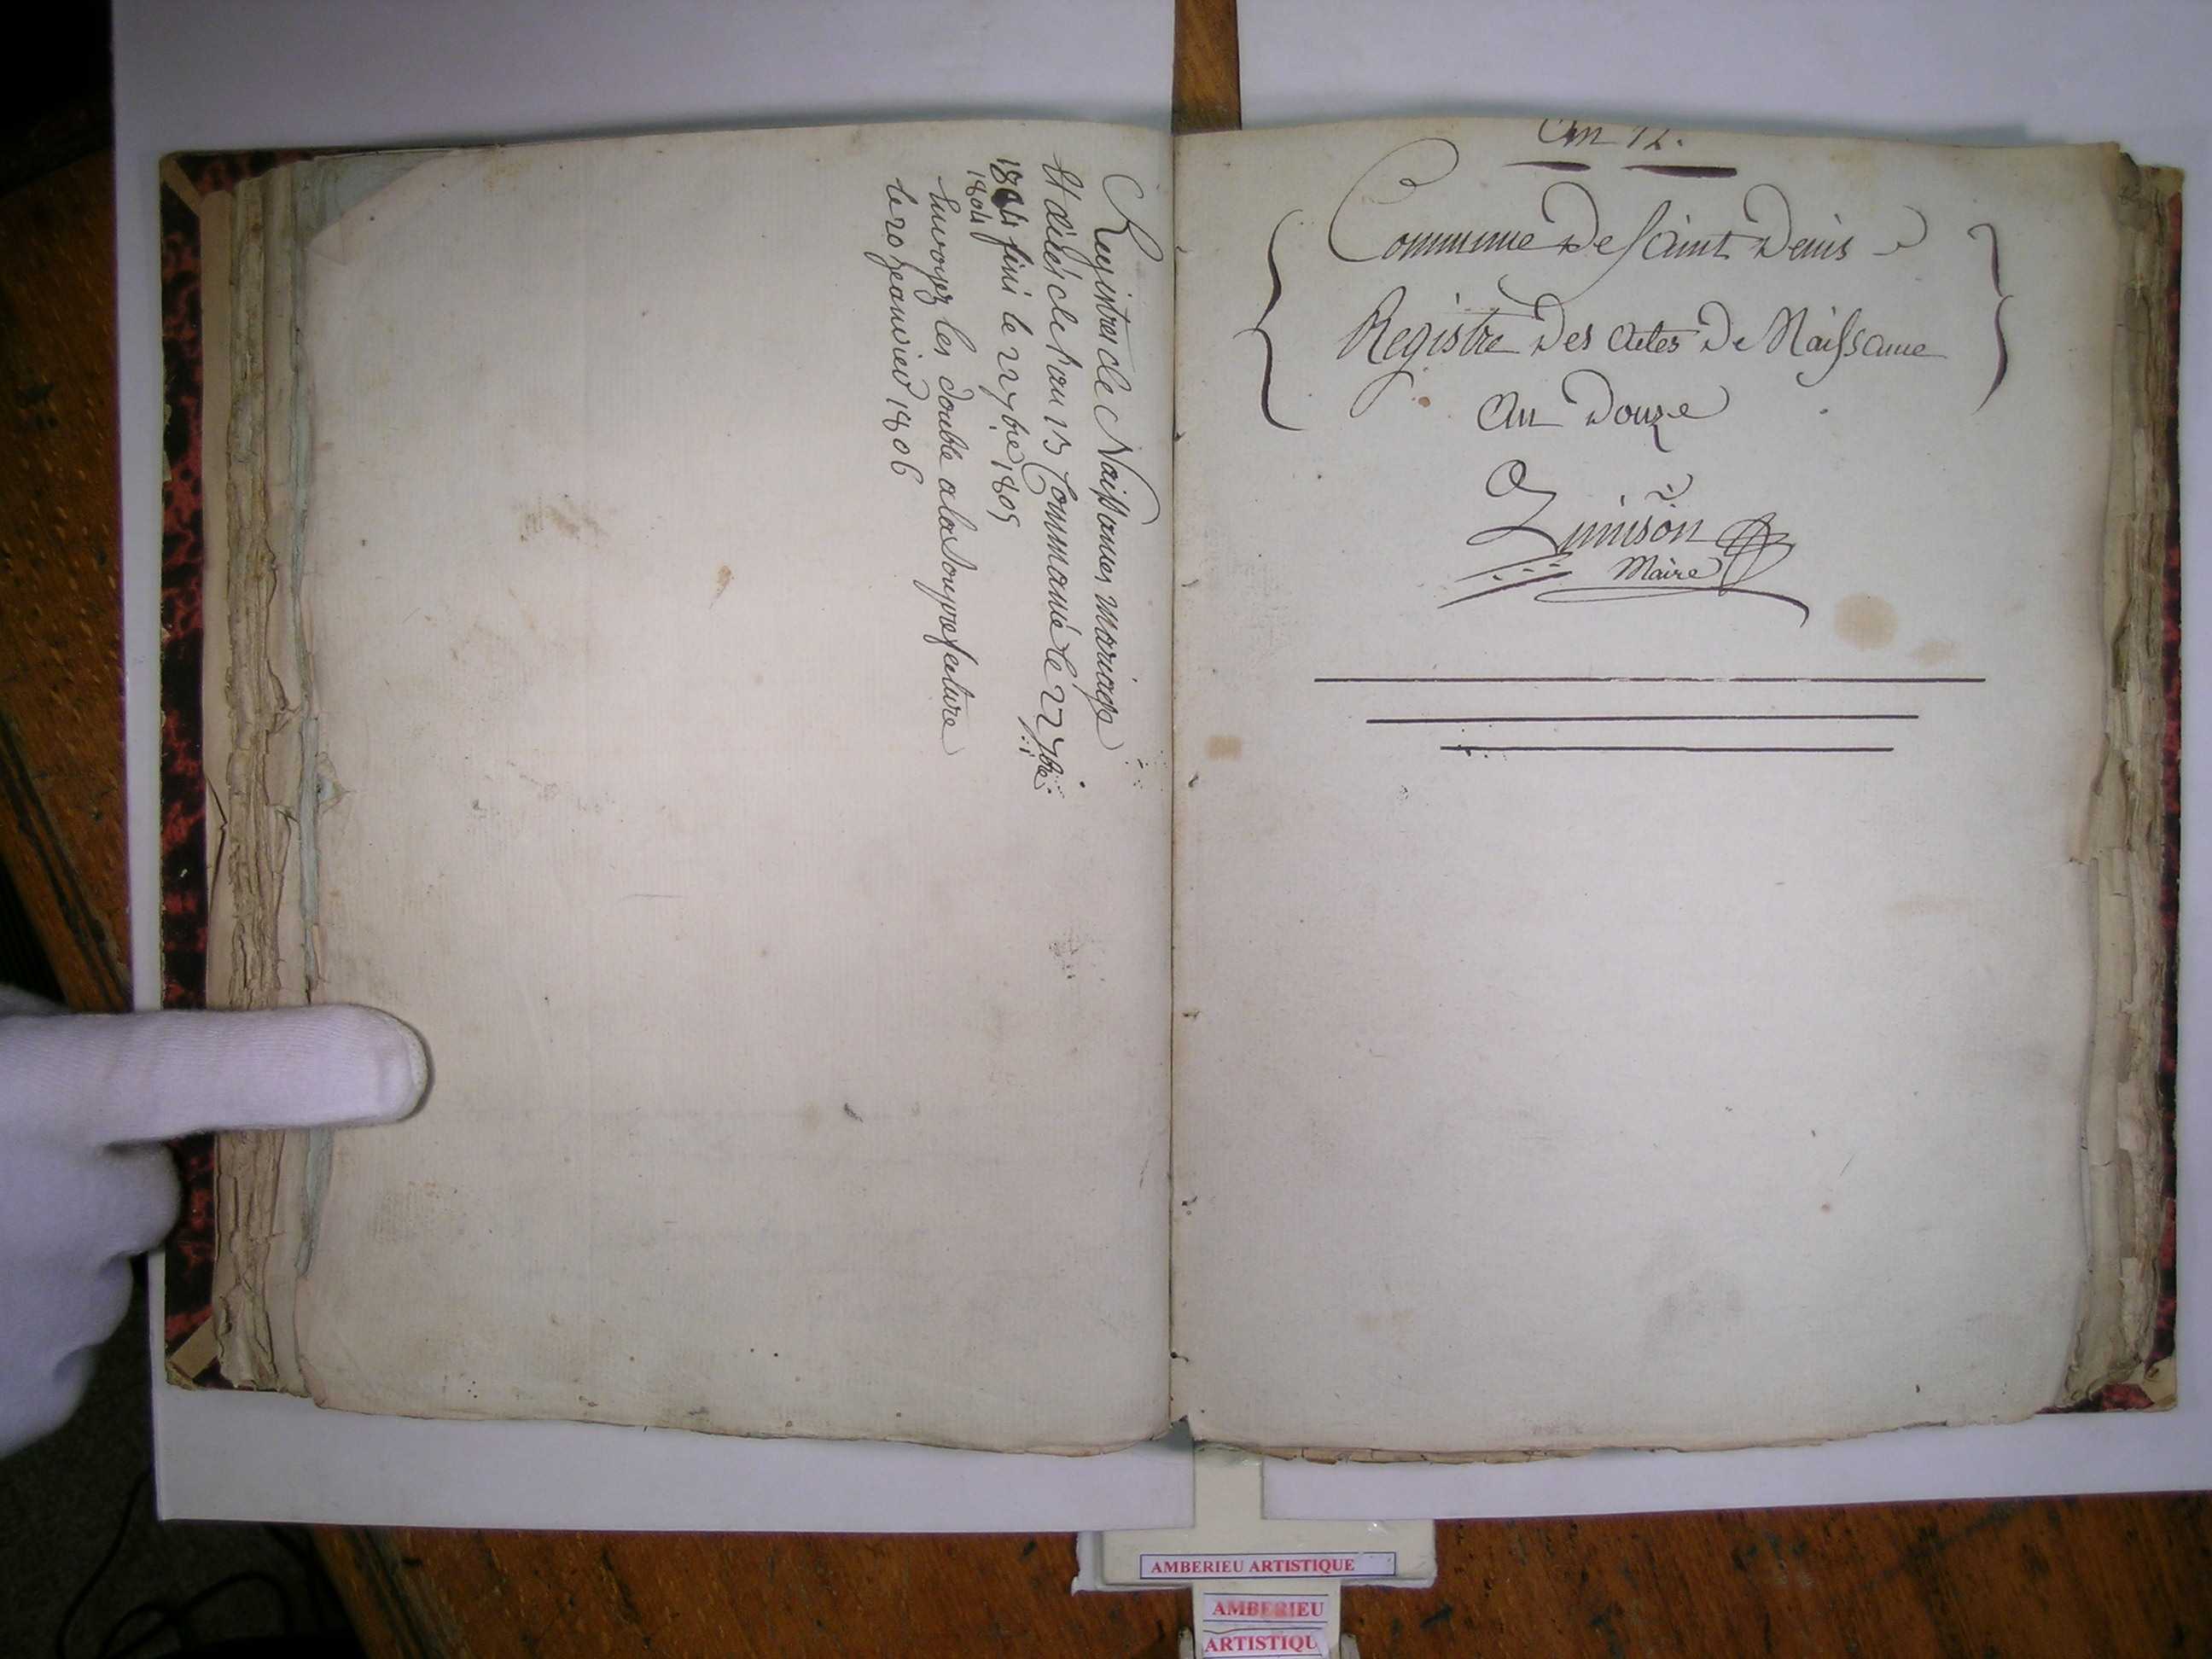 Registres de Naissances mariage
et décès de l'an 13 Commancé le 22 7bre
1804 fini le 22 7bre 1805
1804
Envoyez les double a la Souprefecture
le 20 jeanvier 1806
An 12.
Commune De Saint Denis
Registre Des Actes De Naissance
An Douze
Maire
AMBERIEU ARTISTIQUE
AMBERIEU
ARTISTIQU